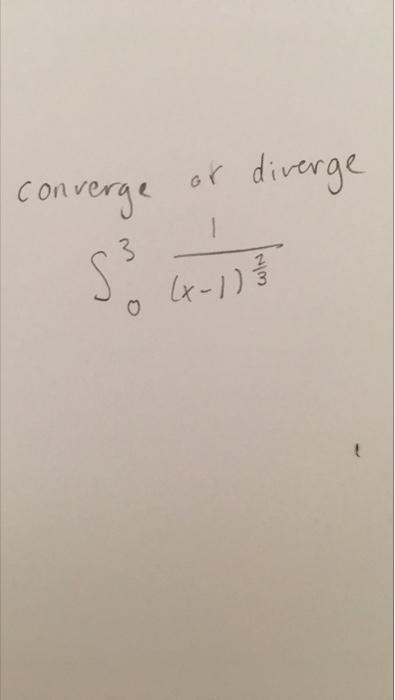 converge or diverge
∫₀³ 1/(x-1)^(2/3)